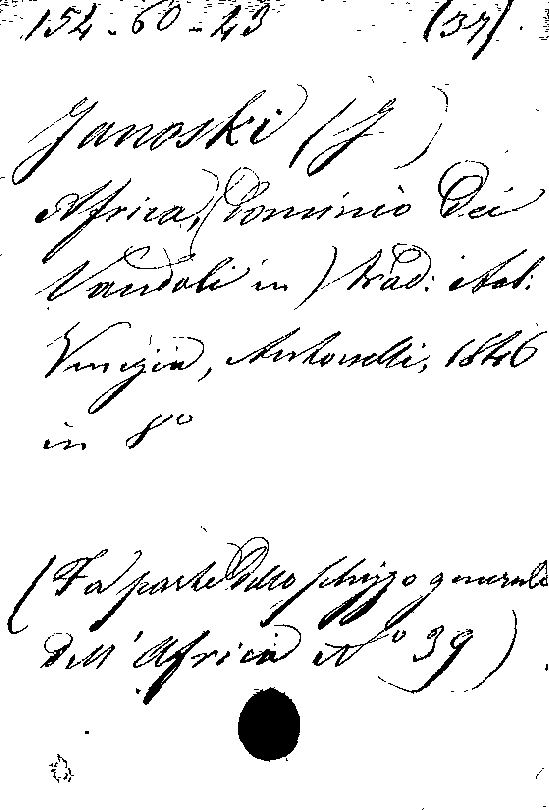 154-60-23 (37).
Janoski (J)
Africa, (Dominio dei
Vandali in) trad: ital:
Venezia, Antonelli, 1846
in 8º
(Fa parte dello schizzo generale
dell'Africa Nº 39)